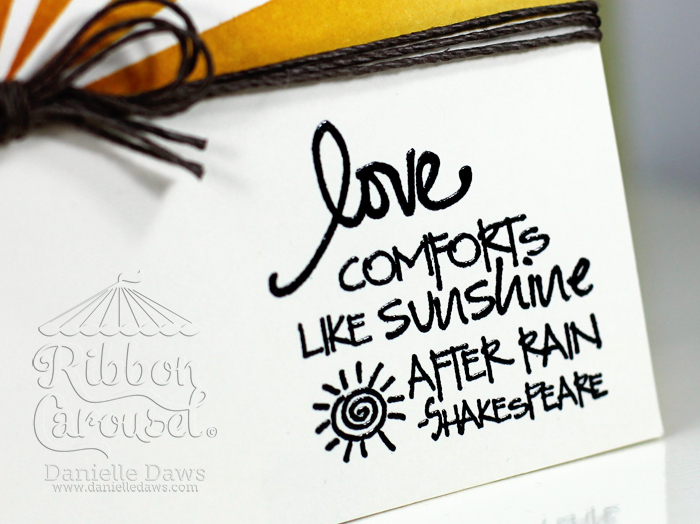 love
COMFORTS
LIKE sunshine
AFTER RAIN
-SHAKESPEARE
Ribbon
Carousel ©
Danielle Daws
www.danielledaws.com